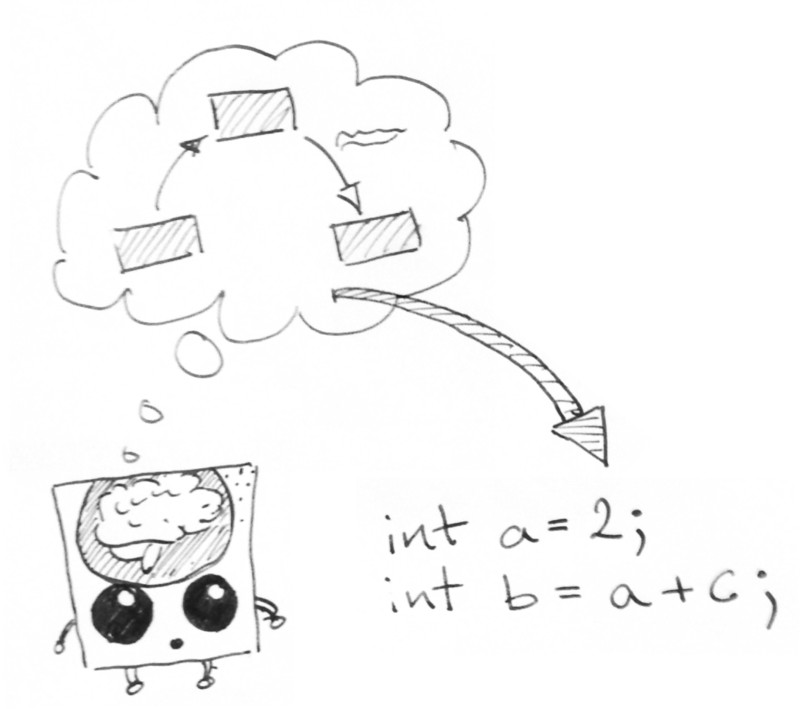 int a = 2;
int b = a + c;